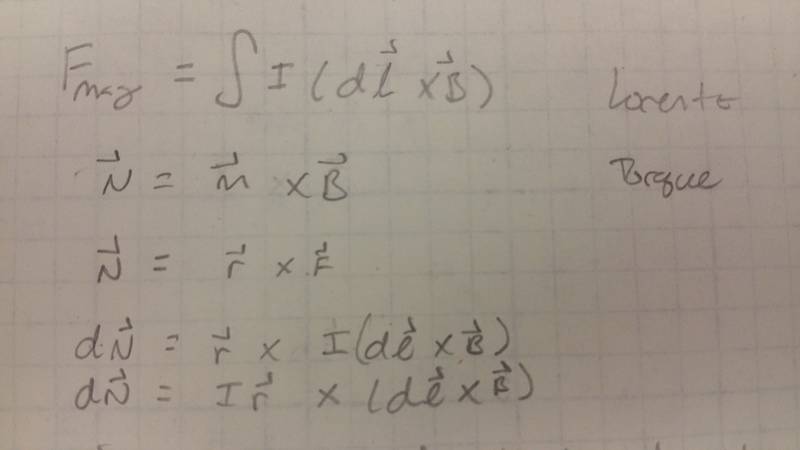 F⃗mag = ∫ I (dl⃗ × B⃗) Lorentz
N⃗ = m⃗ × B⃗ Torque
N⃗ = r⃗ × F⃗
dN⃗ = r⃗ × I(dl⃗ × B⃗)
dN⃗ = I r⃗ × (dl⃗ × B⃗)